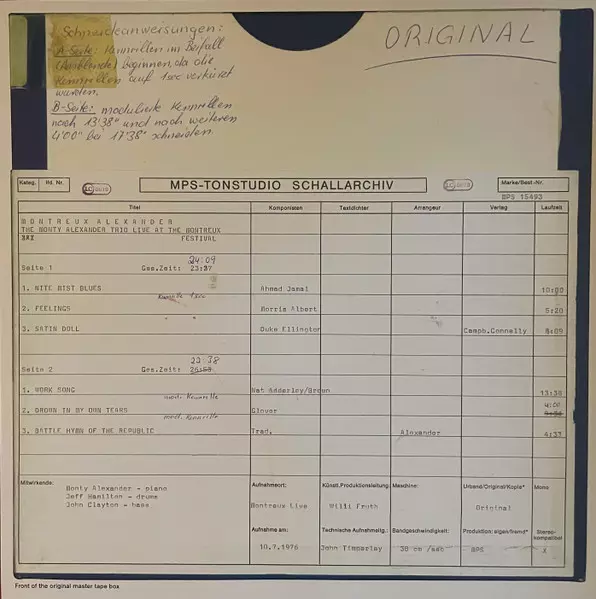 Schneideanweisungen:
A-Seite: Kennrillen im Beifall
(Ausblende) beginnen, da die
Kennrillen auf 1sec verkürzt
wurden.
B-Seite: modulierte Kennrillen
nach 13'38" und nach weiteren
4'00" bei 17'38" schneiden.
ORIGINAL
Kateg. lfd. Nr.
MPS-TONSTUDIO SCHALLARCHIV
Marke/Best.-Nr.
MPS 15493
Titel Komponisten Textdichter Arrangeur Verlag Laufzeit
MONTREUX ALEXANDER
THE MONTY ALEXANDER TRIO LIVE AT THE MONTREUX
FESTIVAL
24:09
Seite 1 Ges.Zeit: 23:37
1. NITE MIST BLUES Ahmad Jamal 10:00
Kennrille 1sec
2. FEELINGS Morris Albert 5:20
" "
3. SATIN DOLL Duke Ellington Camph.Connelly 8:09
23:38
Seite 2 Ges.Zeit:
1. WORK SONG Nat Adderley/Brown 13:38
mod. Kennrille
4:00
2. DROWN IN MY OWN TEARS Glover
mod. Kennrille
3. BATTLE HYMN OF THE REPUBLIC Trad. Alexander 4:37
Mitwirkende:
Monty Alexander - piano
Jeff Hamilton - drums
John Clayton - bass
Aufnahmeort: Künstl. Produktionsleitung: Maschine: Urband/Original/Kopie* Mono
Montreux Live Willi Fruth Original
Aufnahme am: Technische Aufnahmeltg.: Bandgeschwindigkeit: Produktion: eigen/fremd* Stereo-
kompatibel
10.7.1976 John Timperley 38 cm /sec MPS X
Front of the original master tape box